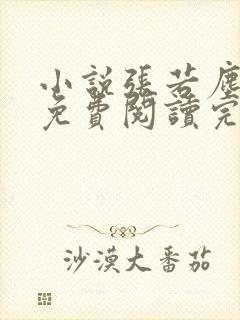 小説張若塵
免費閱讀完
沙漠大番茄